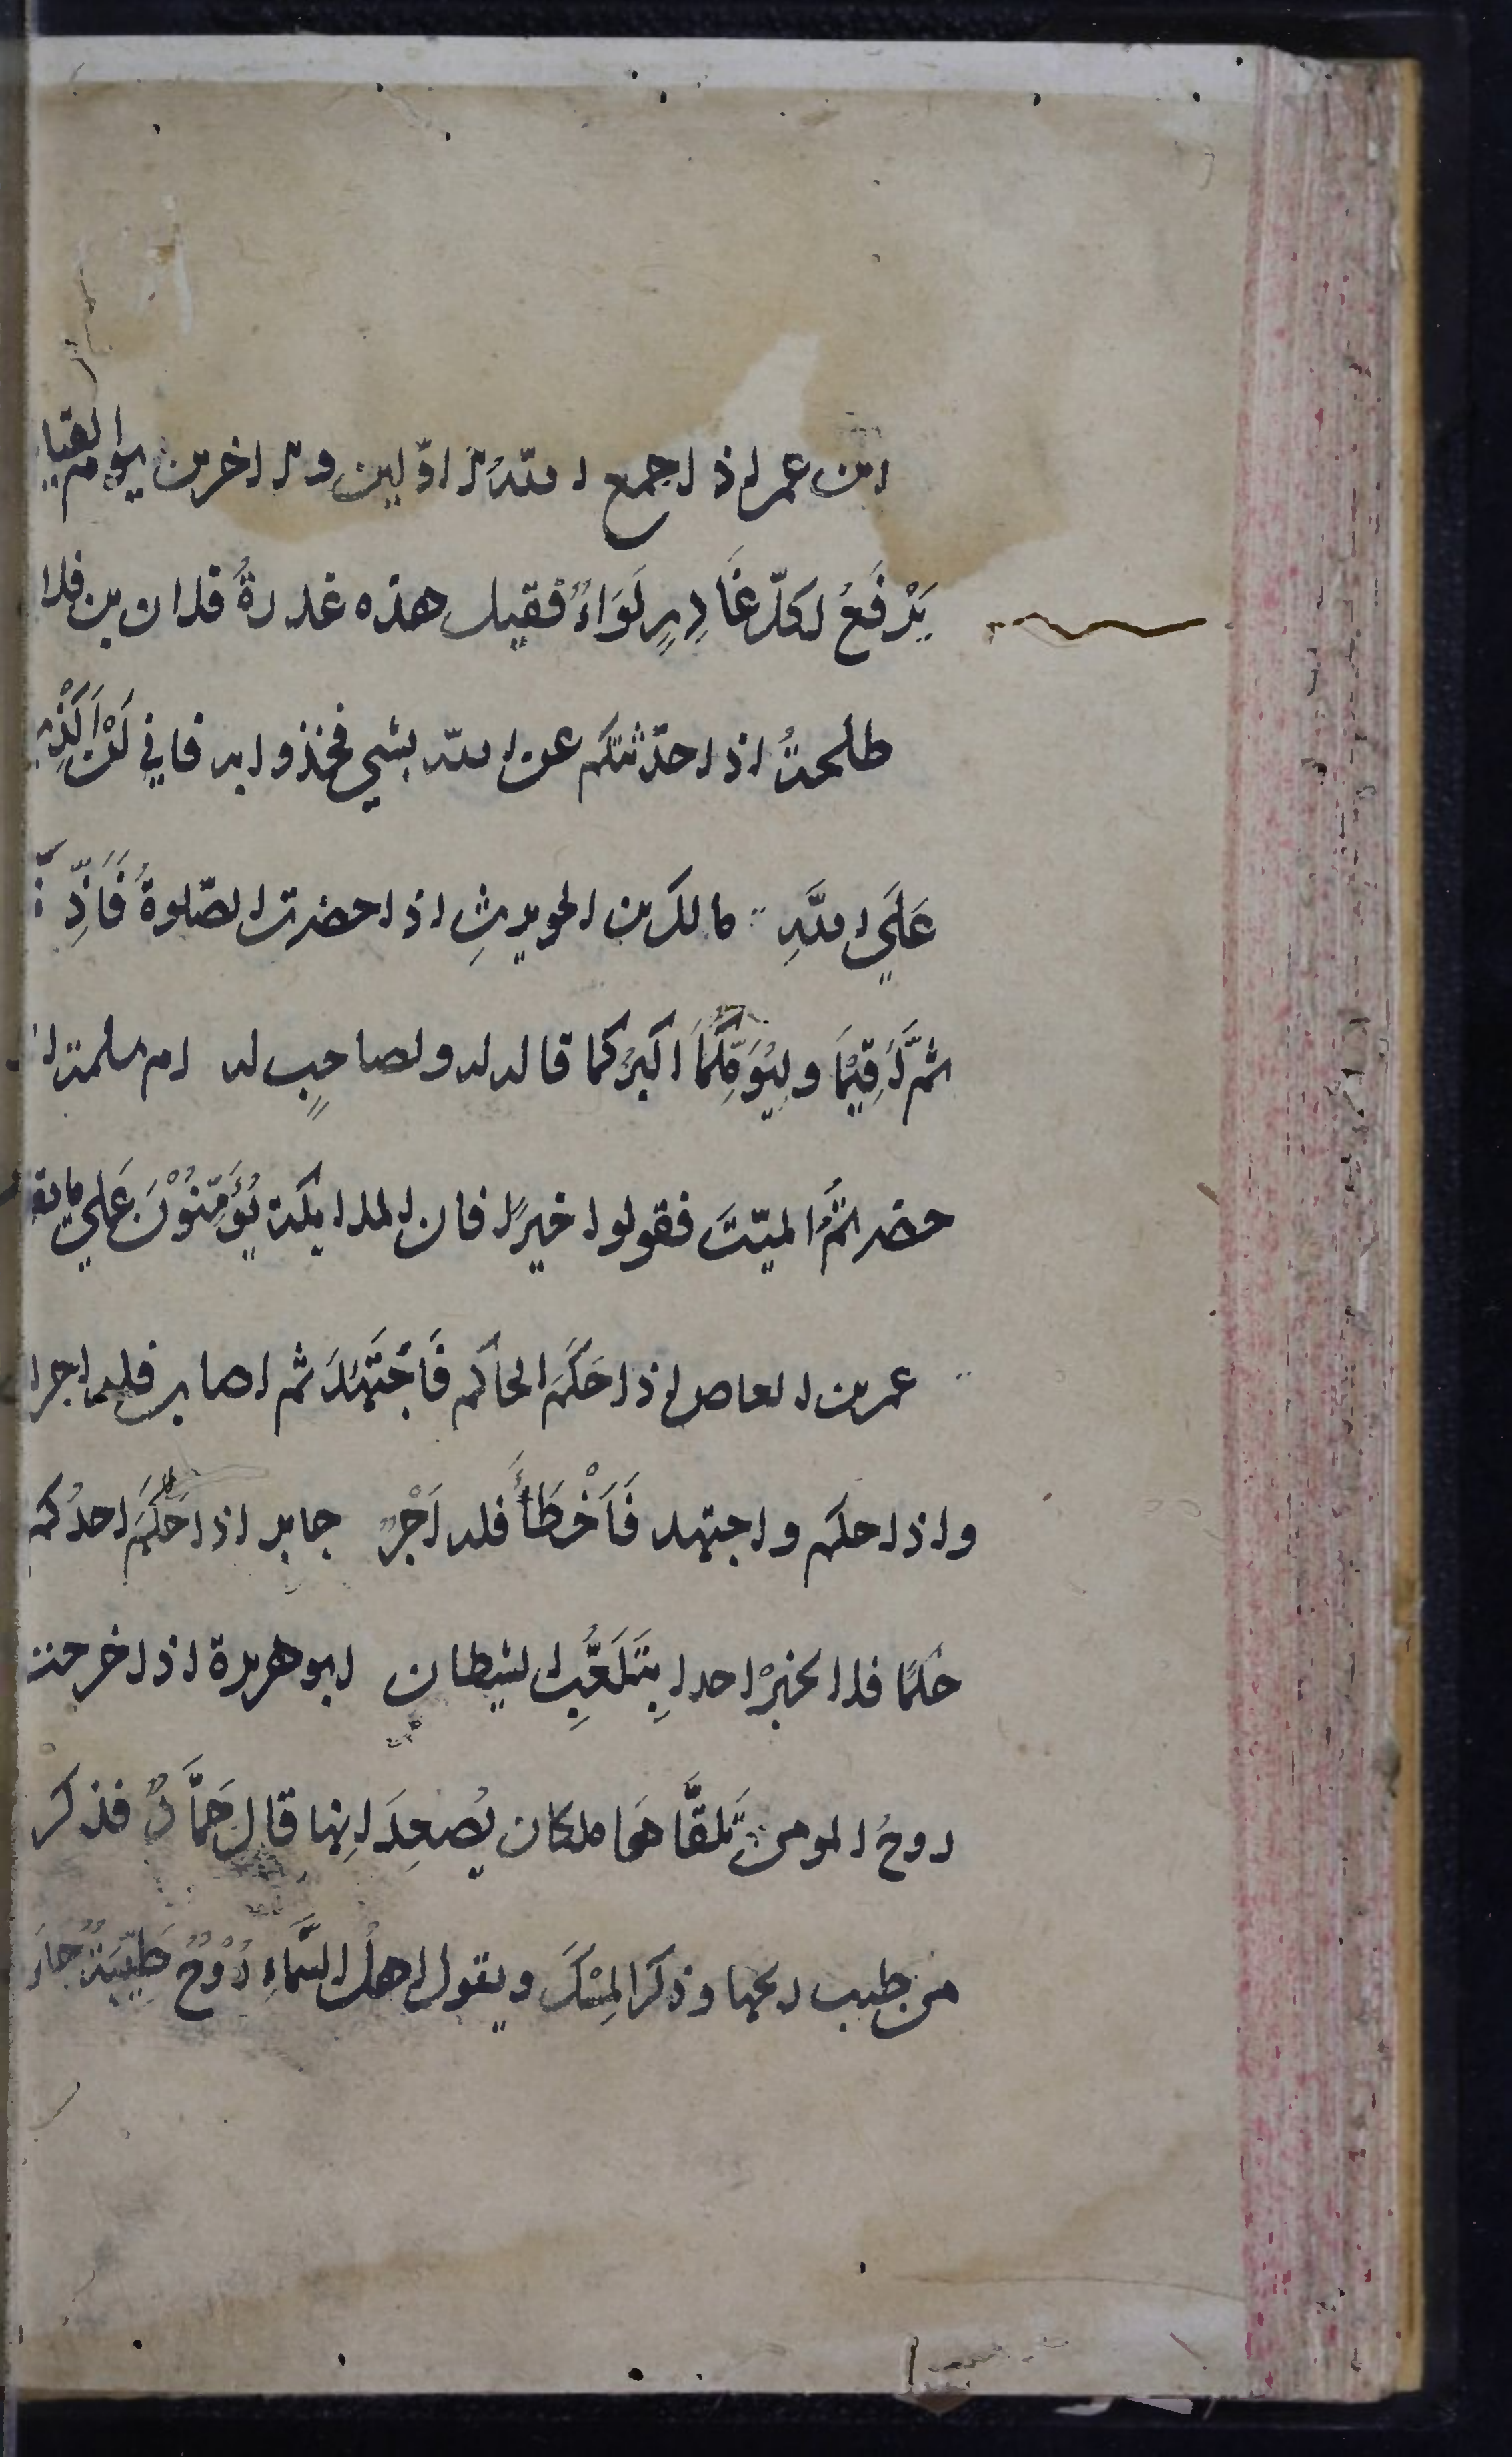 ابن عمر اذا جمع اللّٰهُ الاوّلين والاخرين يوم القيا
يَرْفَعُ لكلّ غَادِرٍ لَوَاءٌ فقيل هذه غدرةُ فلان بن فلا
طلحةُ اذا حدّثتكم عن اللّه بشي فخذوا به فاني لَنْ اَكْذِبَ
عَلَي اللَّهِ مالك بن الحويرثِ اذا حضرت الصّلوةُ فَاَذِّ
ثمَّ اَقِيْمَا وليُؤَمِّكُمَا اَكبرُكما قاله له ولصاحبٍ له ام سلمة ا
حضرتُمُ الميّتَ فقولوا خيرًا فان الملايكة يُؤَمِّنُوْنَ عَلي ما تقو
عمر بن العاص اذا حَكَمَ الحاكم فَاجْتَهَدَ ثم اصاب فله اجرا
واذا حكم واجتهد فَاَخْطَأَ فله اَجْرٌ جابر اذا حَلَمَ احدُكم
حُلمًا فلا يخبرْ احدا بِتَلَعُّبِ الشيطان ابو هريرة اذا خرجت
روحُ المومن تَلقَّاهَا ملكان يُصعِدَانِها قال حَمَّادٌ فذكر
من طيب ريحها وذكر المِسْكَ ويقول اهلُ السَّمَاءِ رُوْحٌ طَيِّبَةٌ جاءَ